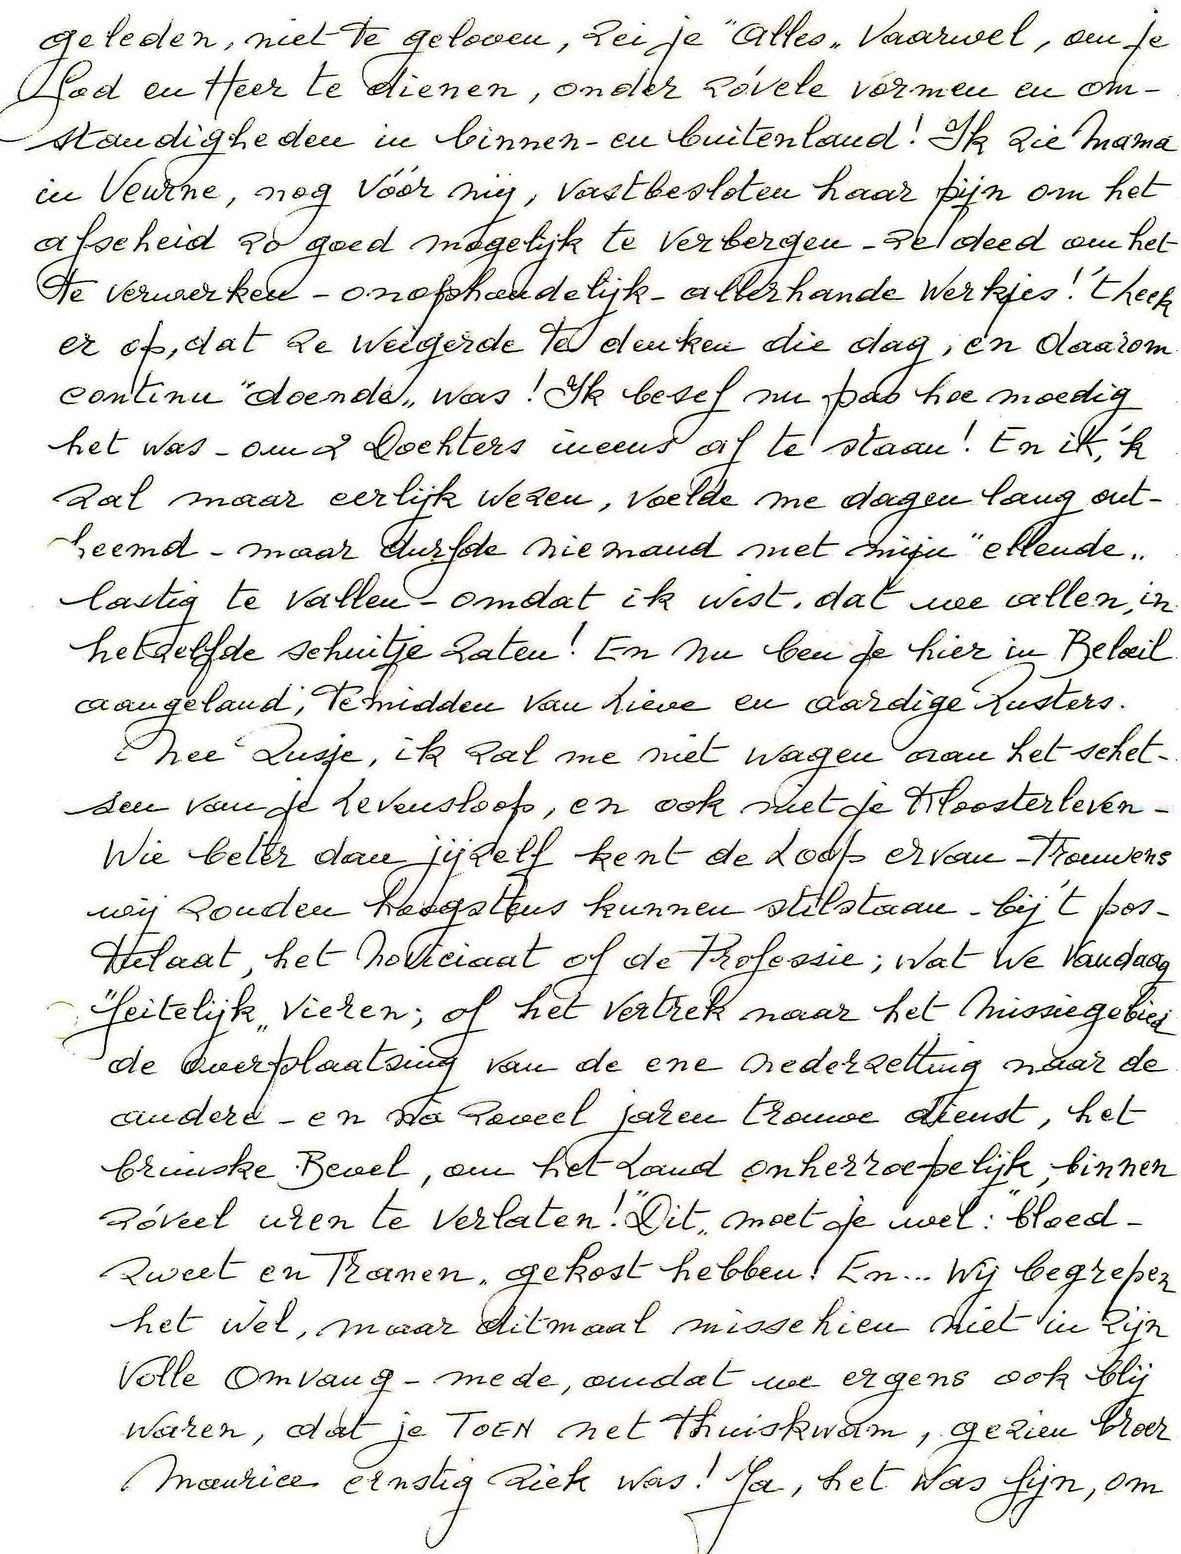 geleden, niet te geloven, zei je "Alles„ Vaarwel, om je
God en Heer te dienen, onder zóvele vormen en om-
standigheden in binnen- en buitenland! Ik zie Mama
in Veurne, nog vóór mij, vastbesloten haar pijn om het
afscheid zo goed mogelijk te verbergen - ze deed om het
te verwerken - onophoudelijk - allerhande werkjes! 't leek
er op, dat ze weigerde te denken die dag, en daarom
continu "doende„ was! Ik besef nu pas hoe moedig
het was - om 2 Dochters ineens af te staan! En ik, 'k
zal maar eerlijk wezen, voelde me dagen lang ont-
heemd - maar durfde niemand met mijn "ellende„
lastig te vallen - omdat ik wist, dat we allen, in
hetzelfde schuitje zaten! En nu ben je hier in Belœil
aangeland, Temidden van Lieve en aardige Zusters.
Nee Zusje, ik zal me niet wagen aan het schet-
sen van je Levensloop, en ook niet je Kloosterleven -
Wie beter dan jijzelf kent de Loop ervan - Trouwens
wij zouden hoogstens kunnen stilstaan - bij 't pos-
tulaat, het Noviciaat of de Professie; wat we Vandaag
"feitelijk„ vieren; of het vertrek naar het Missiegebied
de overplaatsing van de ene nederzetting naar de
andere - en na zoveel jaren trouwe dienst, het
bruuske Bevel, om het Land onherroepelijk, binnen
zóveel uren te verlaten! "Dit„ moet je wel: "bloed -
Zweet en Tranen„ gekost hebben! En... Wij begrepen
het wèl, maar ditmaal misschien niet in zijn
Volle Omvang - mede, omdat we ergens ook blij
waren, dat je TOEN net thuiskwam, gezien broer
Maurice ernstig ziek was! Ja, het was fijn, om